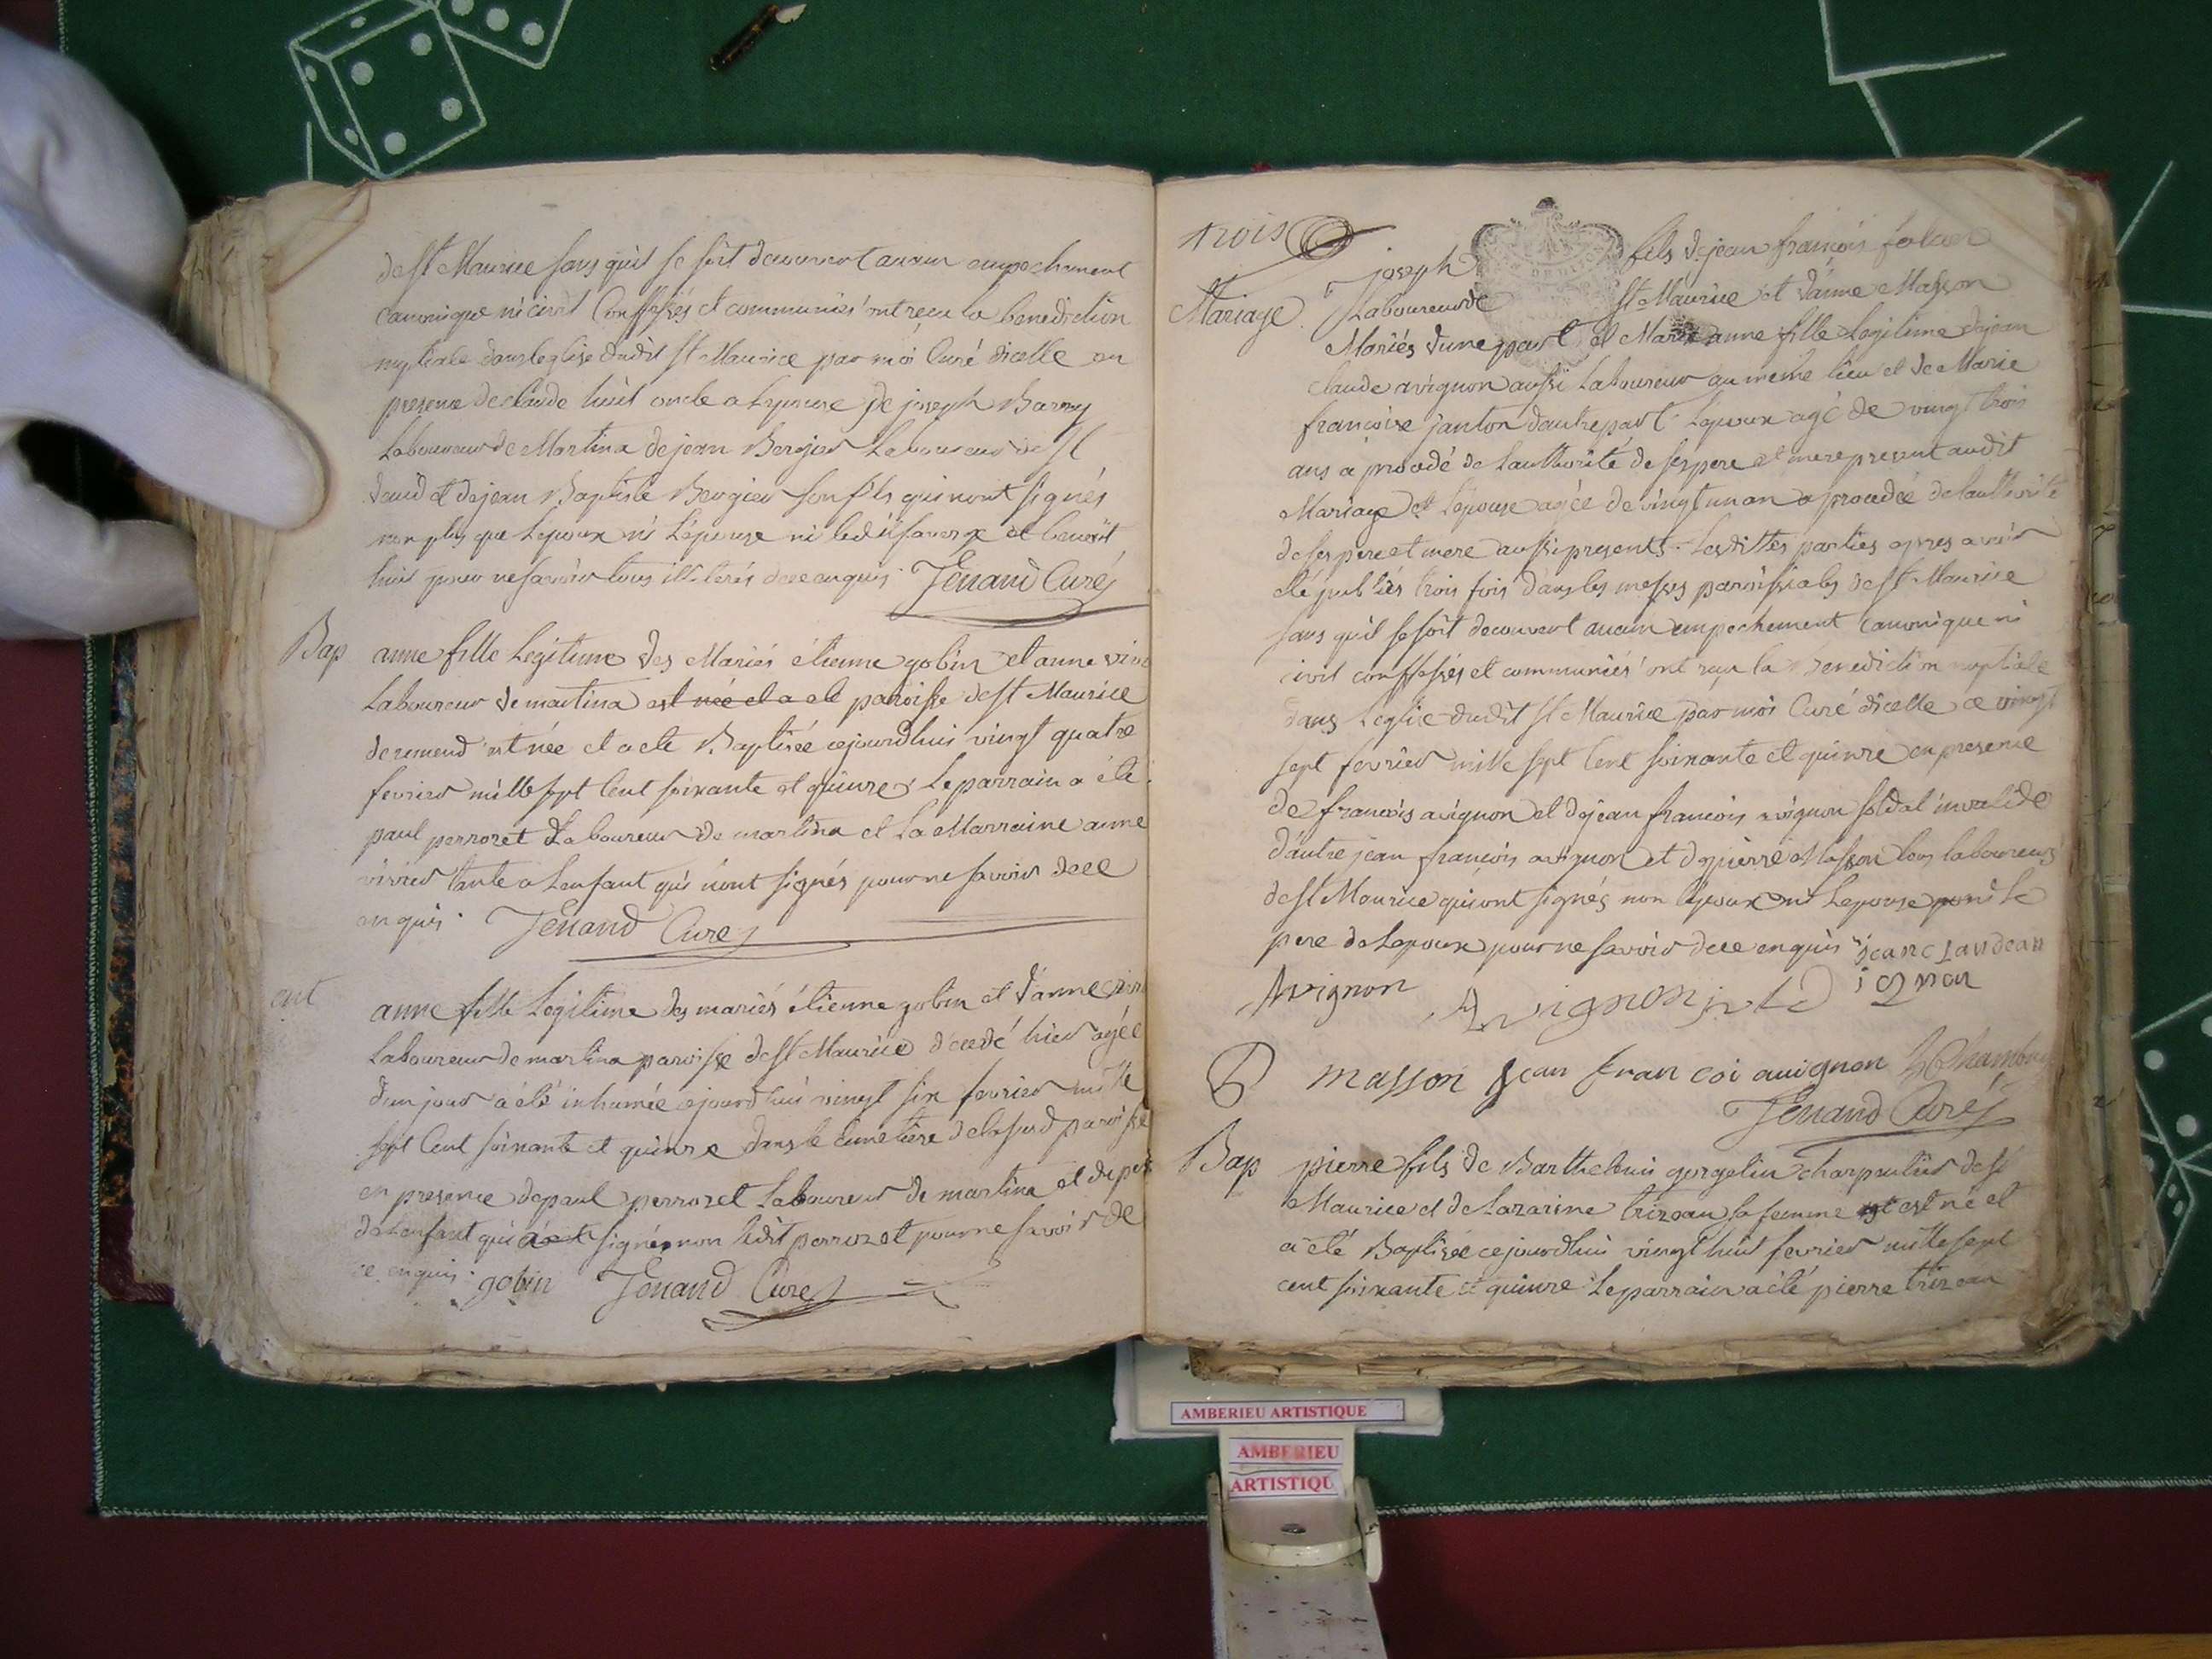 de St Maurice sans quil se soit decouvert aucun empechement
canonique ni civil Confessés et communiés ont recu la benediction
nuptiale dans leglise dudit St Maurice par moi Curé dicelle en
presence de claude huit oncle a Lepouse de joseph Barny
Laboureur de Martina de jean Bergier Laboureur de St
david et de jean Baptiste Bergier son fils qui nont signés
non plus que Lepoux ni Lépouse ni ledit et benoit
huit pour ne savoir tous illiterés de ce enquis. Jenand Curé
Bap anne fille Legitime des Mariés étienne gobin et anne
Laboureur de martina est née et a eté paroisse de St Maurice
de remend est née et a eté Baptisée cejourdhui vingt quatre
fevrier mille sept Cent soixante et quinze Le parrain a été
paul perrozet Laboureur de martina et La Marraine anne
tante a Lenfant qui nont signés pour ne savoir de ce
enquis. Jenand Curé
ent anne fille Legitime des mariés étienne gobin et d'anne
Laboureur de martina paroisse de St Maurice decedé hier agée
d'un jour a été inhumée cejourdhui vingt six fevrier mille
sept Cent soixante et quinze dans le cimetiere de lasusd paroisse
en presence de paul perrozet Laboureur de martina et du pere
de Lenfant qui a signé non ledit perrozet pour ne savoir de
ce enquis. gobin Jenand Curé
trois
Mariage Joseph fils de jean françois
Laboureur de St Maurice et d'anne Masson
Mariés d'une part et Marie anne fille Legitime de jean
claude avignon aussi Laboureur au meme lieu et de Marie
françoise janton dautre part Lepoux agé de vingt trois
ans a procedé de Lauthorité de ses pere et mere present audit
Mariage et Lepouse agée de vingt un an a procedée de lauthorité
de ses pere et mere aussi presents. Lesdittes parties apres avoir
eté publiés trois fois dans les messes paroissiales de St Maurice
sans quil se soit decouvert aucun empechement Canonique ni
civil conffessés et communiés ont reçu la Benediction nuptiale
dans Leglise dudit St Maurice par moi Curé dicelle ce vingt
sept fevrier mille sept Cent soixante et quinze en presence
de françois avignon et de jean françois avignon soldat invalide
d'autre jean françois avignon et de pierre Masson tous laboureurs
de St Maurice qui ont signés non Lepoux ni Lepouse ni le
pere de Lepoux pour ne savoir de ce enquis jean claude av
Avignon Avignon ignon
P masson jean francoi avignon
Jenand Curé
Bap pierre fils de Barthelemi gorgelin charpentier de St
Maurice et de Lazarine trizean sa femme est né et
a eté Baptisée cejourdhui vingt huit fevrier mille sept
cent soixante et quinze Le parrain a eté pierre trizean
AMBERIEU ARTISTIQUE
AMBERIEU
ARTISTIQU